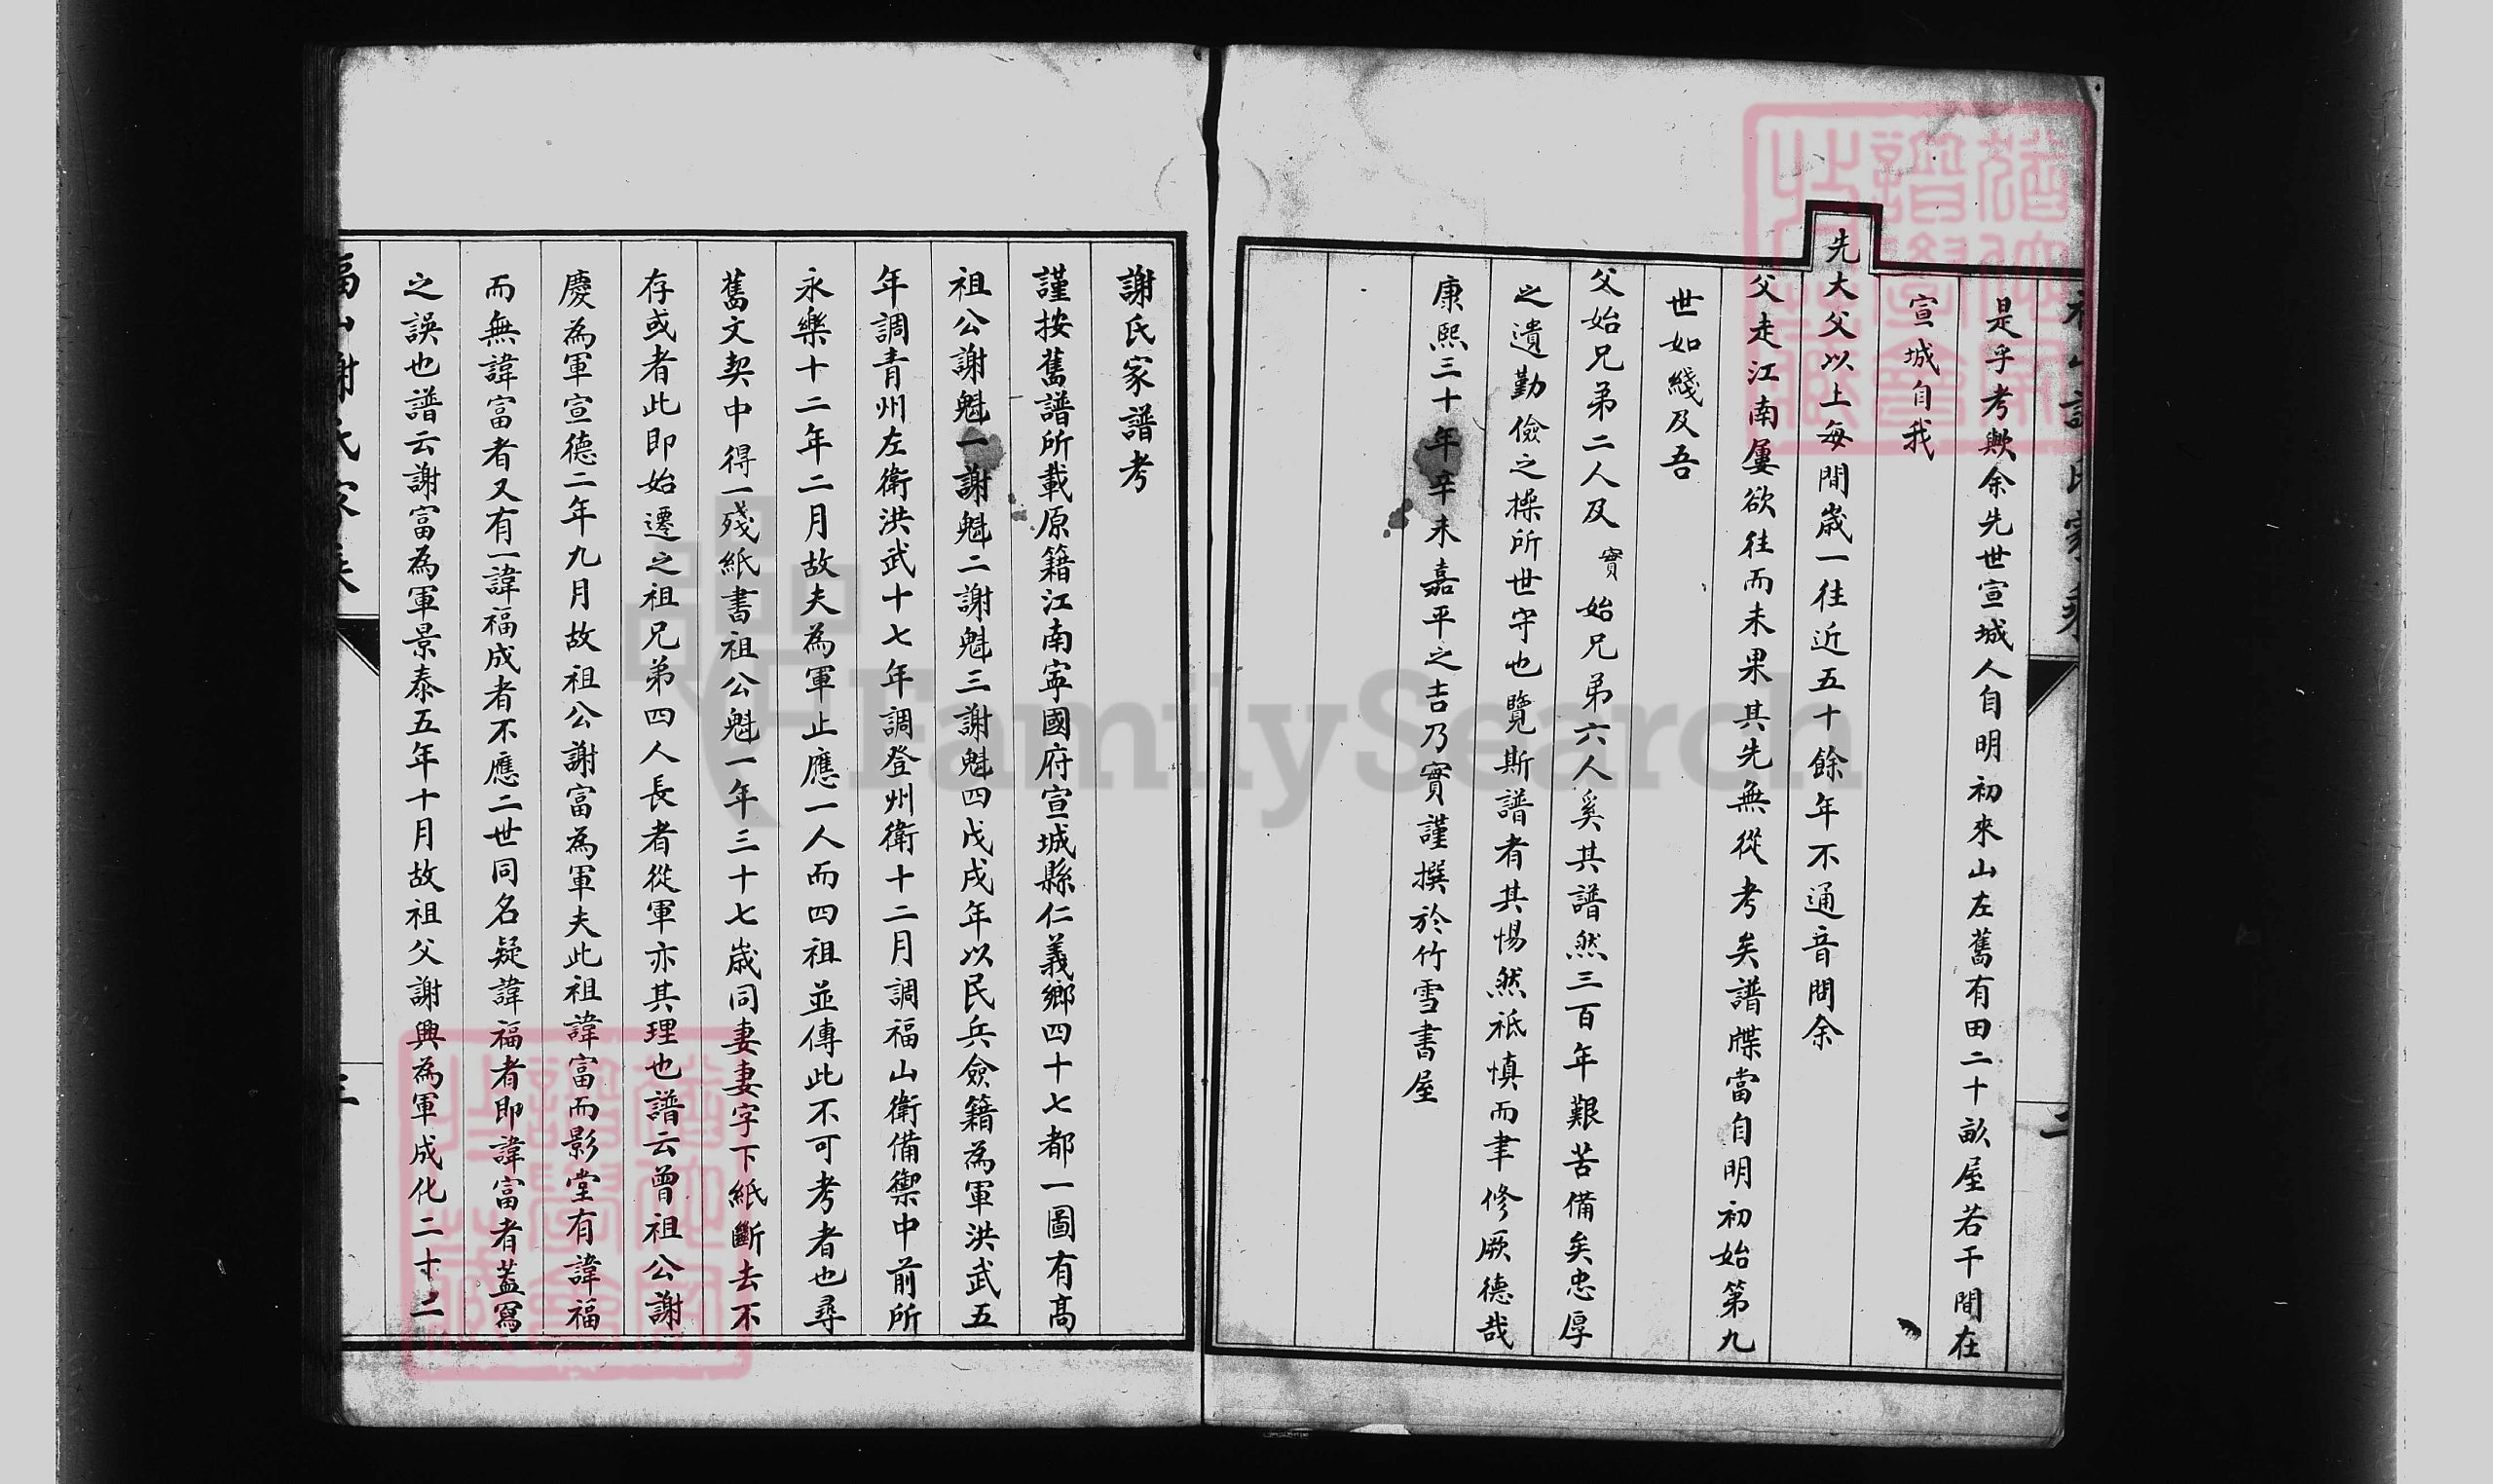 是乎考歟余先世宣城人自明初來山左舊有田二十畝屋若干間在
宣城自我
先大父以上每間歲一往近五十餘年不通音問余
父走江南屢欲往而未果其先無從考矣譜牒當自明初始第九
世如綫及吾
父始兄弟二人及實始兄弟六人奚其譜然三百年艱苦備矣忠厚
之遺勤儉之操所世守也覽斯譜者其惕然祗慎而聿修厥德哉
康熙三十年辛未嘉平之吉乃實謹撰於竹雪書屋
謝氏家譜考
謹按舊譜所載原籍江南寧國府宣城縣仁義鄉四十七都一圖有高
祖公謝魁一謝魁二謝魁三謝魁四戊戌年以民兵僉籍為軍洪武五
年調青州左衛洪武十七年調登州衛十二月調福山衛備禦中前所
永樂十二年二月故夫為軍止應一人而四祖並傳此不可考者也尋
舊文契中得一殘紙書祖公魁一年三十七歲同妻妻字下紙斷去不
存或者此即始遷之祖兄弟四人長者從軍亦其理也譜云曾祖公謝
慶為軍宣德二年九月故祖公謝富為軍夫此祖諱富而影堂有諱福
而無諱富者又有一諱福成者不應二世同名疑諱福者即諱富者蓋寫
之誤也譜云謝富為軍景泰五年十月故祖父謝興為軍成化二十二
福山謝氏家乘
三
FamilySearch